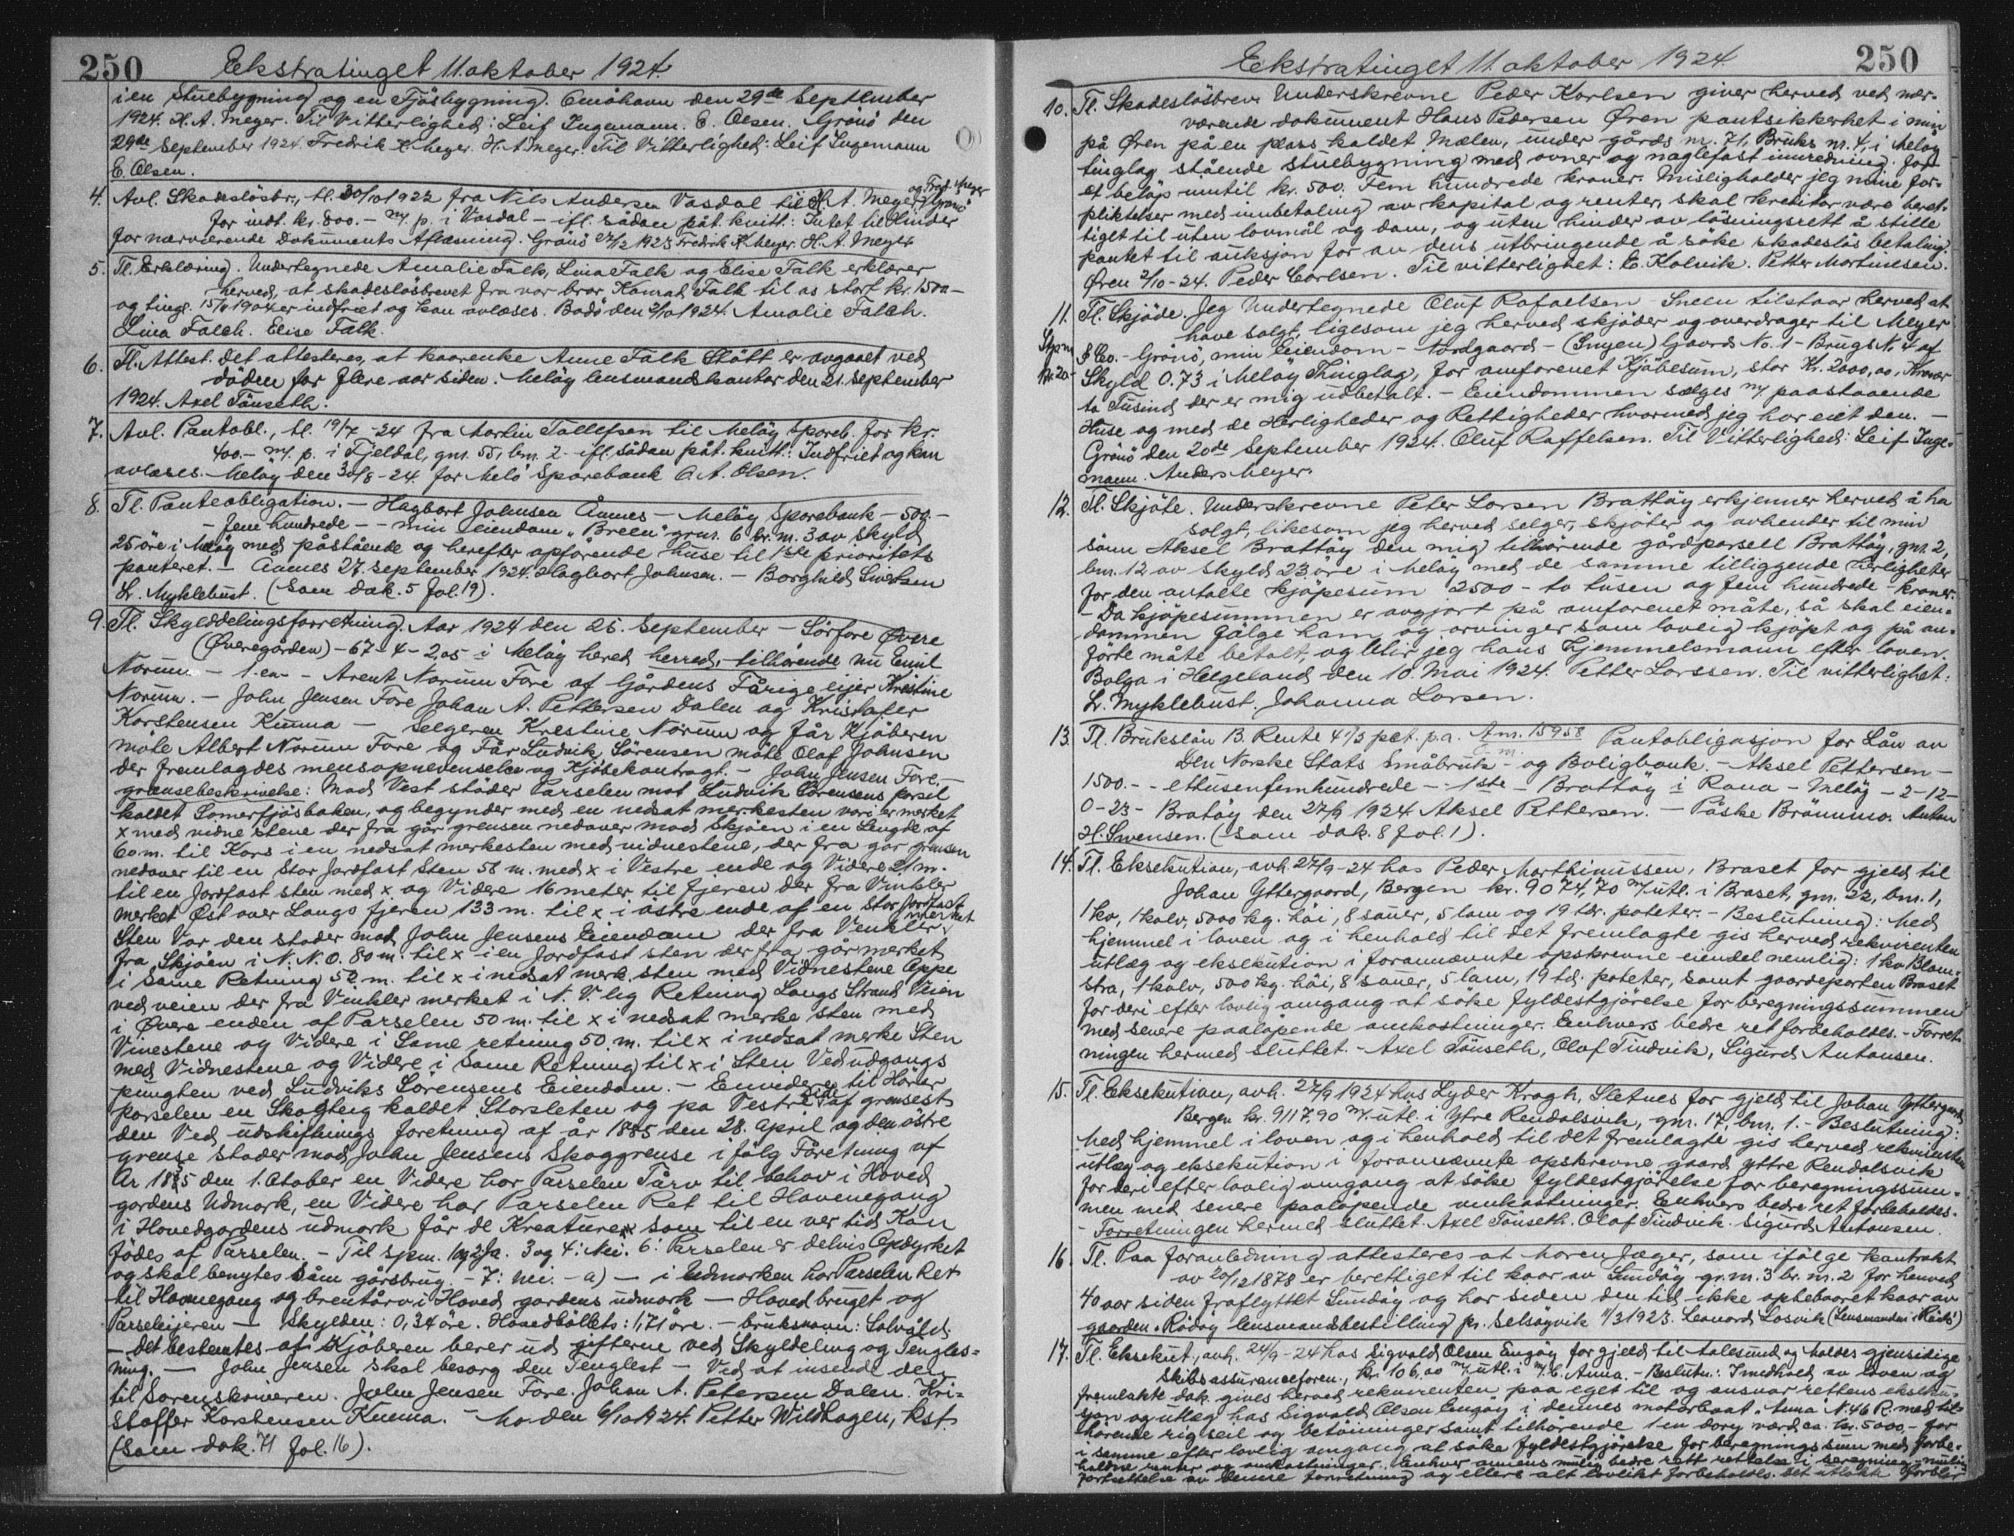 250 Ekstratinget 11. oktober 1924.
i en Stuebygning og en Fjøsbygning. Enåhavn den 29de September
1924. H. A. Meyer. Til Vitterlighed: Leif Ingemann. E. Olsen. Grönö den
29de September 1924. Fredrik K. Meyer. H. A. Meyer. Til Vitterlighed: Leif Ingemann
E. Olsen.
4. Avl. Skadeslösbr., tl. 30/10 1922 fra Nils Andersen Vasdal til H. A. Meyer og Fred. Meyer Grönö
for indt. kr. 800.- m/ p. i Vasdal - ifl. sådan påt. kvitt.: Intet til Hinder
for nærværende Dokuments Aflæsning. Grönö 27/12 1923 Fredrik K. Meyer. H. A. Meyer
5. Tl. Erklæring. Undertegnede Amalie Falk, Lina Falk og Elise Falk erklærer
herved, at skadeslösbrevet fra vor bror Konrad Falk til os stort kr. 1500-
og tingl. 15/6 1904 er indfriet og kan avlæses. Bodö den 6/10 1924. Amalie Falch.
Lina Falch. Elise Falk.
6. Tl. Attest. Det attesteres, at kaarenke Anne Falk Stött er avgaaet ved
döden for flere aar siden. Melöy lensmandskontor den 21. september
1924. Axel Tönseth.
7. Avl. Pantobl., tl. 19/7-24 fra Martin Tollefsen til Melöy Spareb. for kr.
400.- m/ p. i Fjeldal, gnr. 55, bnr. 2 - ifl. sådan påt. kvitt.: Indfriet og kan
avlæses. Melöy den 30/8-24. for Melö Sparebank C. A. Olsen.
8. Tl. Panteobligation. - Hagbart Johnsen Ånnes - Melöy Sparebank - 500 -
- fem hundrede - - min eiendom "Breen" gnr. 6 br. nr. 3 av skyld
25 öre i Melöy med påstående og herefter opförende huse til 1ste prioritets
panteret. - Ånnes 27. september 1924. Hagbart Johnsen. - Borghild Sivertsen
L. Myklebust. (Som dok. 5 fol. 19).
9. Tl. Skylddelingsforretning. Aar 1924 den 25. September - Sörfore Övre
(Øvregården) - 67-4-2,05 i Melöy hered herred, - tilhörende nu Emil
Norum - 1. en - Arent Norum Fore af Gårdens Fårige eijer Kristine
Norum. - John Jensen Fore Johan A. Pettersen Dalen og Kristofer
Korstensen Kunna - Selgeren Krestine Norum og får Kjöberen
möte Albert Norum Fore og Får Ludvik Sörensen möte Olaf Johnsen
der fremlagdes mensopnevnelse og Kjöbekontragt. - John Jensen Fore. -
grænsebeskrivelse: Mod Vest stöder Parselen mot Ludvik Sörensens parsel
kaldet Somerfjösbaken, og begynder med en nedsat merkesten vori er merket
x med vidne stene der fra går grensen nedover mod Skjöen i en Lengde af
60 m. til Kors i en nedsat merkesten med vidnestene, der fra går grensen
nedover til en Stor Jordfast Sten 58 m. med x i Vestre ende og Videre 21 m.
til en Jordfast sten med x og Videre 16 meter til fjeren der fra Vinkler
merket Øst over Langs fjeren 133 m. til x i östre ende af en Stor Jordfast
Sten Vor den stader mod John Jensens Eiendom der fra Venkler merket
fra Skjöen i N. N. O. 80 m. til x i en Jordfast sten der fra går merket
i Same Retning 50 m. til x i nedsat merk sten med Vidnestene Oppe
ved veien der fra Vinkler merket i N. V. lig Retning Langs Strand Veien
i Øvere enden af Parselen 50 m. til x i nedsat merke sten med
Vinestene og Videre i Same retning 50 m. til x i nedsat merke Sten
med Vidnestene og Videre i Same Retning til x i Sten Ved udgangs
pungten ved Ludviks Sörensens Eiendom. - Envidere til Hörer
parselen en Skogteig kaldet Storsleten og pa Vestre Side af grensest
den Ved udskiftnings foretning af år 1885 den 28. April og den östre
grense stader mod John Jensens Skoggrense i fölg Foretning af
År 1885 den 1. Otober en Videre har Parselen Tårv til behov i Hoved
gordens Udmark, en Videre har Parselen Ret til Havenegang
i Hovedgordens udmark får de Kreature som til en ver tid Kan
födes af Parselen. - Til spm. 1 og 2 ja. 3 og 4: Nei. 6: Parselen er delvis Opdyrket
og skal benytes Som gårsbrug. - 7: Nei. - a) - i Udmarken har Parselen Ret
til Havnegang og brentårv i Hoved gordens udmark - Hoved bruget og
Parseleijeren - Skylden: 0,34 öre. Hovedböllets: 1,71 öre. - bruksnavn: Solvåld.
- Det bestemtes at Kjöberen berer ud gifterne ved Skyldeling og Tengles=
ning. - John Jensen skal besörg den Tenglest - Ved at insende den
til Sorenskriveren. John Jensen Fore. Johan A. Petersen Dalen. Kri-
stoffer Korstensen Kunna. - Mo den 6/10 1924. Petter Wildhagen, kst.
(Som dok. 71 fol. 16).
Ekstratinget 11 oktober 1924 250
10. Tl. Skadeslösbrev. Underskrevne Peder Karlsen giver herved ved nær-
værende dokument Hans Pedersen Øren pantsikkerhet i min
på Øren på en plass kaldet Mælen, under gårds nr. 71, Bruks nr. 4, i Meløy
tinglag stående stuebygning med ovner og naglefast innredning. for
et beløp inntil kr. 500. Fem hundrede kroner. Misligholder jeg mine for-
pliktelser med innbetaling av kapital og renter, skal kreditor være beret-
tiget til uten lovmål og dom, og uten hinder av lösningsrett å stille
pantet til auksjon for av dens utbringende å söke skadeslös betaling.
Øren 2/10-24. Peder Carlsen. Til vitterlighet: E. Kolvik. Petter Martinesen.
11. Tl. Skjöde. Jeg Undertegnede Oluf Rafaelsen Sneen tilstaar herved at
have solgt, ligesom jeg herved skjöder og overdrager til Meyer
& Co. - Grönö, min Eiendom - Nordgaard - (Inyen) Gaards No. 1 - Brugs N. 4 af
Stpm
Kr. 20.-
Skyld 0.73 i Melöy Thinglag, for omforenet Kjöbesum, stor Kr. 2000,00, Kroner
to Tusind, der er mig udbetalt. - Eiendommen sælges m/ paastaaende
Huse og med de Herligheder og Rettigheder hvormed jeg har eiet den. -
Grönö den 20de September 1924. Oluf Raffelsen. Til Vitterlighed: Leif Inge-
mann. Anders Meyer.
12. Tl. Skjöte. Underskrevne Peter Larsen Brattöy erkjenner herved å ha
solgt, likesom jeg herved selger, skjöter og avhender til min
sönn Aksel Brattöy den mig tilhörende gårdparsell Brattöy, gnr. 2,
bnr. 12 av skyld 23 öre i Melöy med de samme tilliggende herligheter
for den avtalte kjöpesum 2500 - to tusen og fem hundrede - kroner.
- Da kjöpesummen er avgjort på omforenet måte, så skal eien-
dommen fölge ham og arvinger som lovlig kjöpt og på an-
förte måte betalt, og blir jeg hans hjemmelsmann efter loven.
Bolga i Helgeland den 10. Mai 1924. Petter Larssen. Til vitterlighet:
L. Myklebust. Johanna Larsen.
13. Tl. Brukslån B. Rente 4 1/2 pct. p.a. Am. 15958 Pantobligasjon for Lån av
Den Norske Stats Småbruk- og Boligbank. - Aksel Pettersen -
1500.- - ettusenfemhundrede - 1ste - Brattöy i Rana - Melöy - 2-12-
0-23- Bratöy den 27/9 1924 Aksel Pettersen. - Påske Brönmo. Anton
H. Swensen. (Som dok. 8 fol. 1).
14. Tl. Eksekution, avh. 27/9-24 hos Peder Marthinussen, Braset for gjeld til
Johan Yttergaard, Bergen kr. 9074,70 m/ utl. i Braset, gnr. 22, bnr. 1,
1 ko, 1 kalv, 5000 kg. höi, 8 sauer, 5 lam og 19 tdr. poteter. - Beslutning: Med
hjemmel i loven og i henhold til det fremlagte gis herved rekvirenten
utlæg og eksekution i forannævnte opskrevne eiendel nemlig: 1 ko Blom-
stra, 1 kalv, 500 kg. höi, 8 sauer, 5 lam, 19 td. poteter, samt gaardeparten Braset
for deri efter lovlig omgang at söke fyldestgjörelse for beregningssummen
med senere paalöpende omkostninger. Enhvers bedre ret forbeholdes. - Forret-
ningen hermed sluttet. - Axel Tönseth, Olaf Tindvik, Sigurd Antonsen.
15. Tl. Eksekution, avh. 27/9 1924 hos Lyder Kragh, Sletnes for gjeld til Johan Yttergaard
Bergen kr. 9117.90 m/ utl. i Ytre Rendalsvik, gnr. 17, bnr. 1. - Beslutning:
Med hjemmel i loven og i henhold til det fremlagte gis herved rekvirenten
utlæg og eksekution i forannævnte opskrevne gaard Yttre Rendalsvik
for deri efter lovlig omgang at söke fyldestgjörelse for beregningssum-
men med senere paalöpende omkostninger. Enhvers bedre ret forbeholdes.
- Forretningen hermed sluttet. Axel Tönseth. Olaf Tindvik. Sigurd Antonsen.
16. Tl. Paa foranledning attesteres at Maren Jæger, som ifölge kontrakt
av 20/12 1878 er berettiget til kaar av Sundöy gr. nr. 3 br. nr. 2 for henved
40 aar siden fraflyttet Sundöy og har siden den tid ikke opebaaret kaar av
gaarden. Rödöy lensmandsbestilling pr. Selsöyvik 11/3 1923. Leonard Losvik (Lensmanden i Rödö)
17. Tl. Eksekut., avh. 24/9-24 hos Sigvald Olsen Engöy for gjeld til Aalesund og Moldes gjensidige
Skibsassuranceforen., kr. 106,00 m/ utl. i M/K. Anna. - Beslutn.: I medhold av loven og
fremlakte dok. gives herved rekvirenten paa eget til og ansvar rettens eksekut-
sjon og utlæg hos Sigvald Olsen Engöy i dennes motorbaat "Anna" N. 46 R. med til-
hörende rig seil og betöininger samt tilhörende 1 en dory værd ca. kr. 5000.- for
i samme efter lovlig omgang at söke fyldestgjörelse for beregnings sum med forbe-
holdne renter og omkostninger. Enhver anden mulig bedre rett rettelse i beregning, mulig
fortsettelse av denne forretning og ellers alt lovlikt forbeholdes. Det utlakte forblir